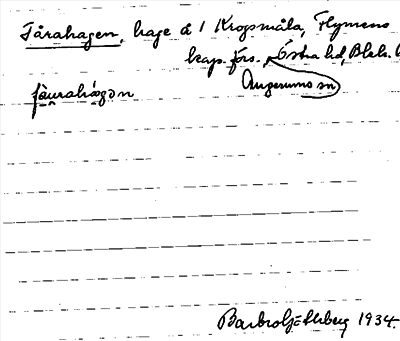 Fårahagen, hage å 1 Krogsmåla, Flymens
kap. förs., Östra hd, Blek. l
Augerums sn
fåurahágən
Barbro 1934.